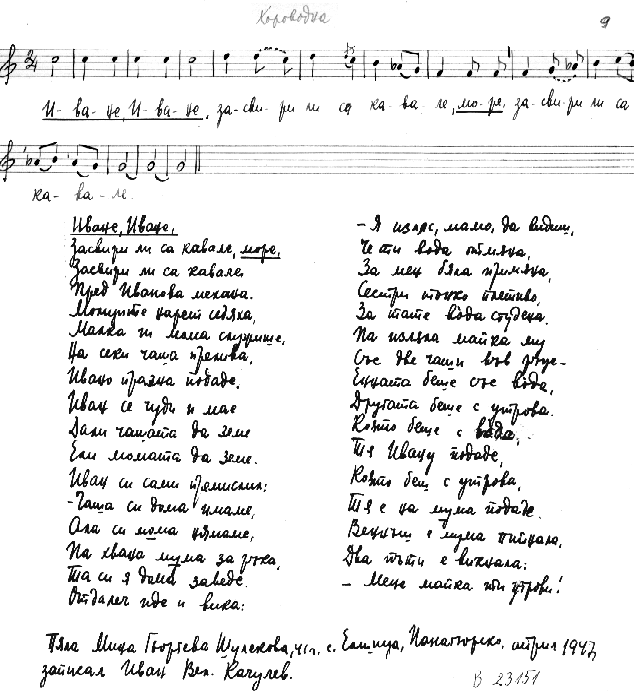 Хороводна
9
И-ва-не, И-ва-не, за-сви-ри ли са ка-ва-ле, мо-ре, за-сви-ри ли са
ка-ва-ле.
Иване, Иване,
Засвири ли са кавале, море,
Засвири ли са кавале.
Пред Иванова механа.
Момците наред седяха,
Малка ги мома
На секи чаша
Ивано празна подаде.
Иван се чуди и мае
Дали чашата да земе
Ели момата да земе.
Иван си сам премисли:
- Чаша си дома имаме,
Ала си мома нямаме,
Па хвана мума за рока,
Та си я дома заведе.
Отдалеч иде и вика:
- Я излес, мамо, да видиш,
Че ти вода отмяна,
За мен бяла примяна,
Сестри тонко плетиво,
За тате вода студена.
Па изляла майка му
Със две чаши във роце -
Едната беше със вода,
Другата беше с утрова.
Която беше с вода,
Тя Ивану подаде,
Която беш с утрова,
Тя е на мума подаде.
Веднъш е мума пийнала,
Два пъти е викнала:
- Мене майка ти утрови!
Пяла Мица Георгева Шулекова, с. Елшица, Панагюрско. 1947,
записал Иван Вел. Качулев.
В 23151